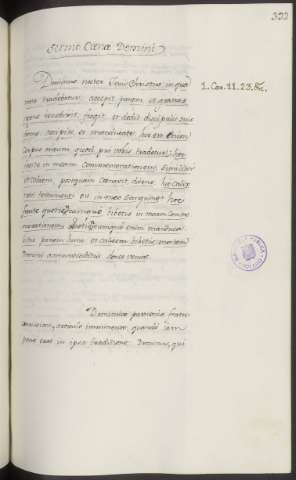 332
Sermo Cœnæ Domini
Dominus noster Jesus Christus in qua
nocte tradebatur, accepit panem et gratias
fregit et dedit discipulis suis
accipite et manducate: hoc est enim
Corpus meum quod pro vobis tradetur: hoc
facite in meam commemorationem. Similiter
et calicem, postquam cœnavit dicens: hic calix
novi testamenti est in meo sanguine: hoc
facite quotiescumque bibetis in meam comme
morationem. quotiescumque enim manduca
bitis panem hunc et calicem bibetis mortem
Domini annuntiabitis donec veniat.
1. Cor. 11. 23. &c.
Dominicæ passionis
quando jam
pene erat in ipsa traditione Dominus, qui